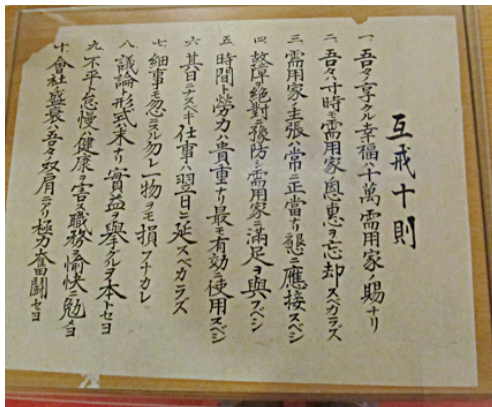 互戒十則
一、吾々ノ享クル幸福ハ十萬需用家ノ賜ナリ
二、吾々ハ寸時モ需用家ノ恩惠ヲ忘却スベカラズ
三、需用家ノ主張ハ常ニ正當ナリ懇ニ應接スベシ
四、故障ヲ絶對ニ豫防シ需用家ニ滿足ヲ與フベシ
五、時間ト勞力ハ貴重ナリ最モ有効ニ使用スベシ
六、其日ニナスベキ仕事ハ翌日ニ延スベカラズ
七、細事モ忽ニスル勿レ一物ヲモ損フナカレ
八、議論ト形式ハ末ナリ實益ヲ擧グルヲ本トセヨ
九、不平ト怠慢ハ健康ヲ害ス職務ヲ愉快ニ勉メヨ
十、會社ノ盛衰ハ吾々ノ双肩ニアリ極力奮鬪セヨ